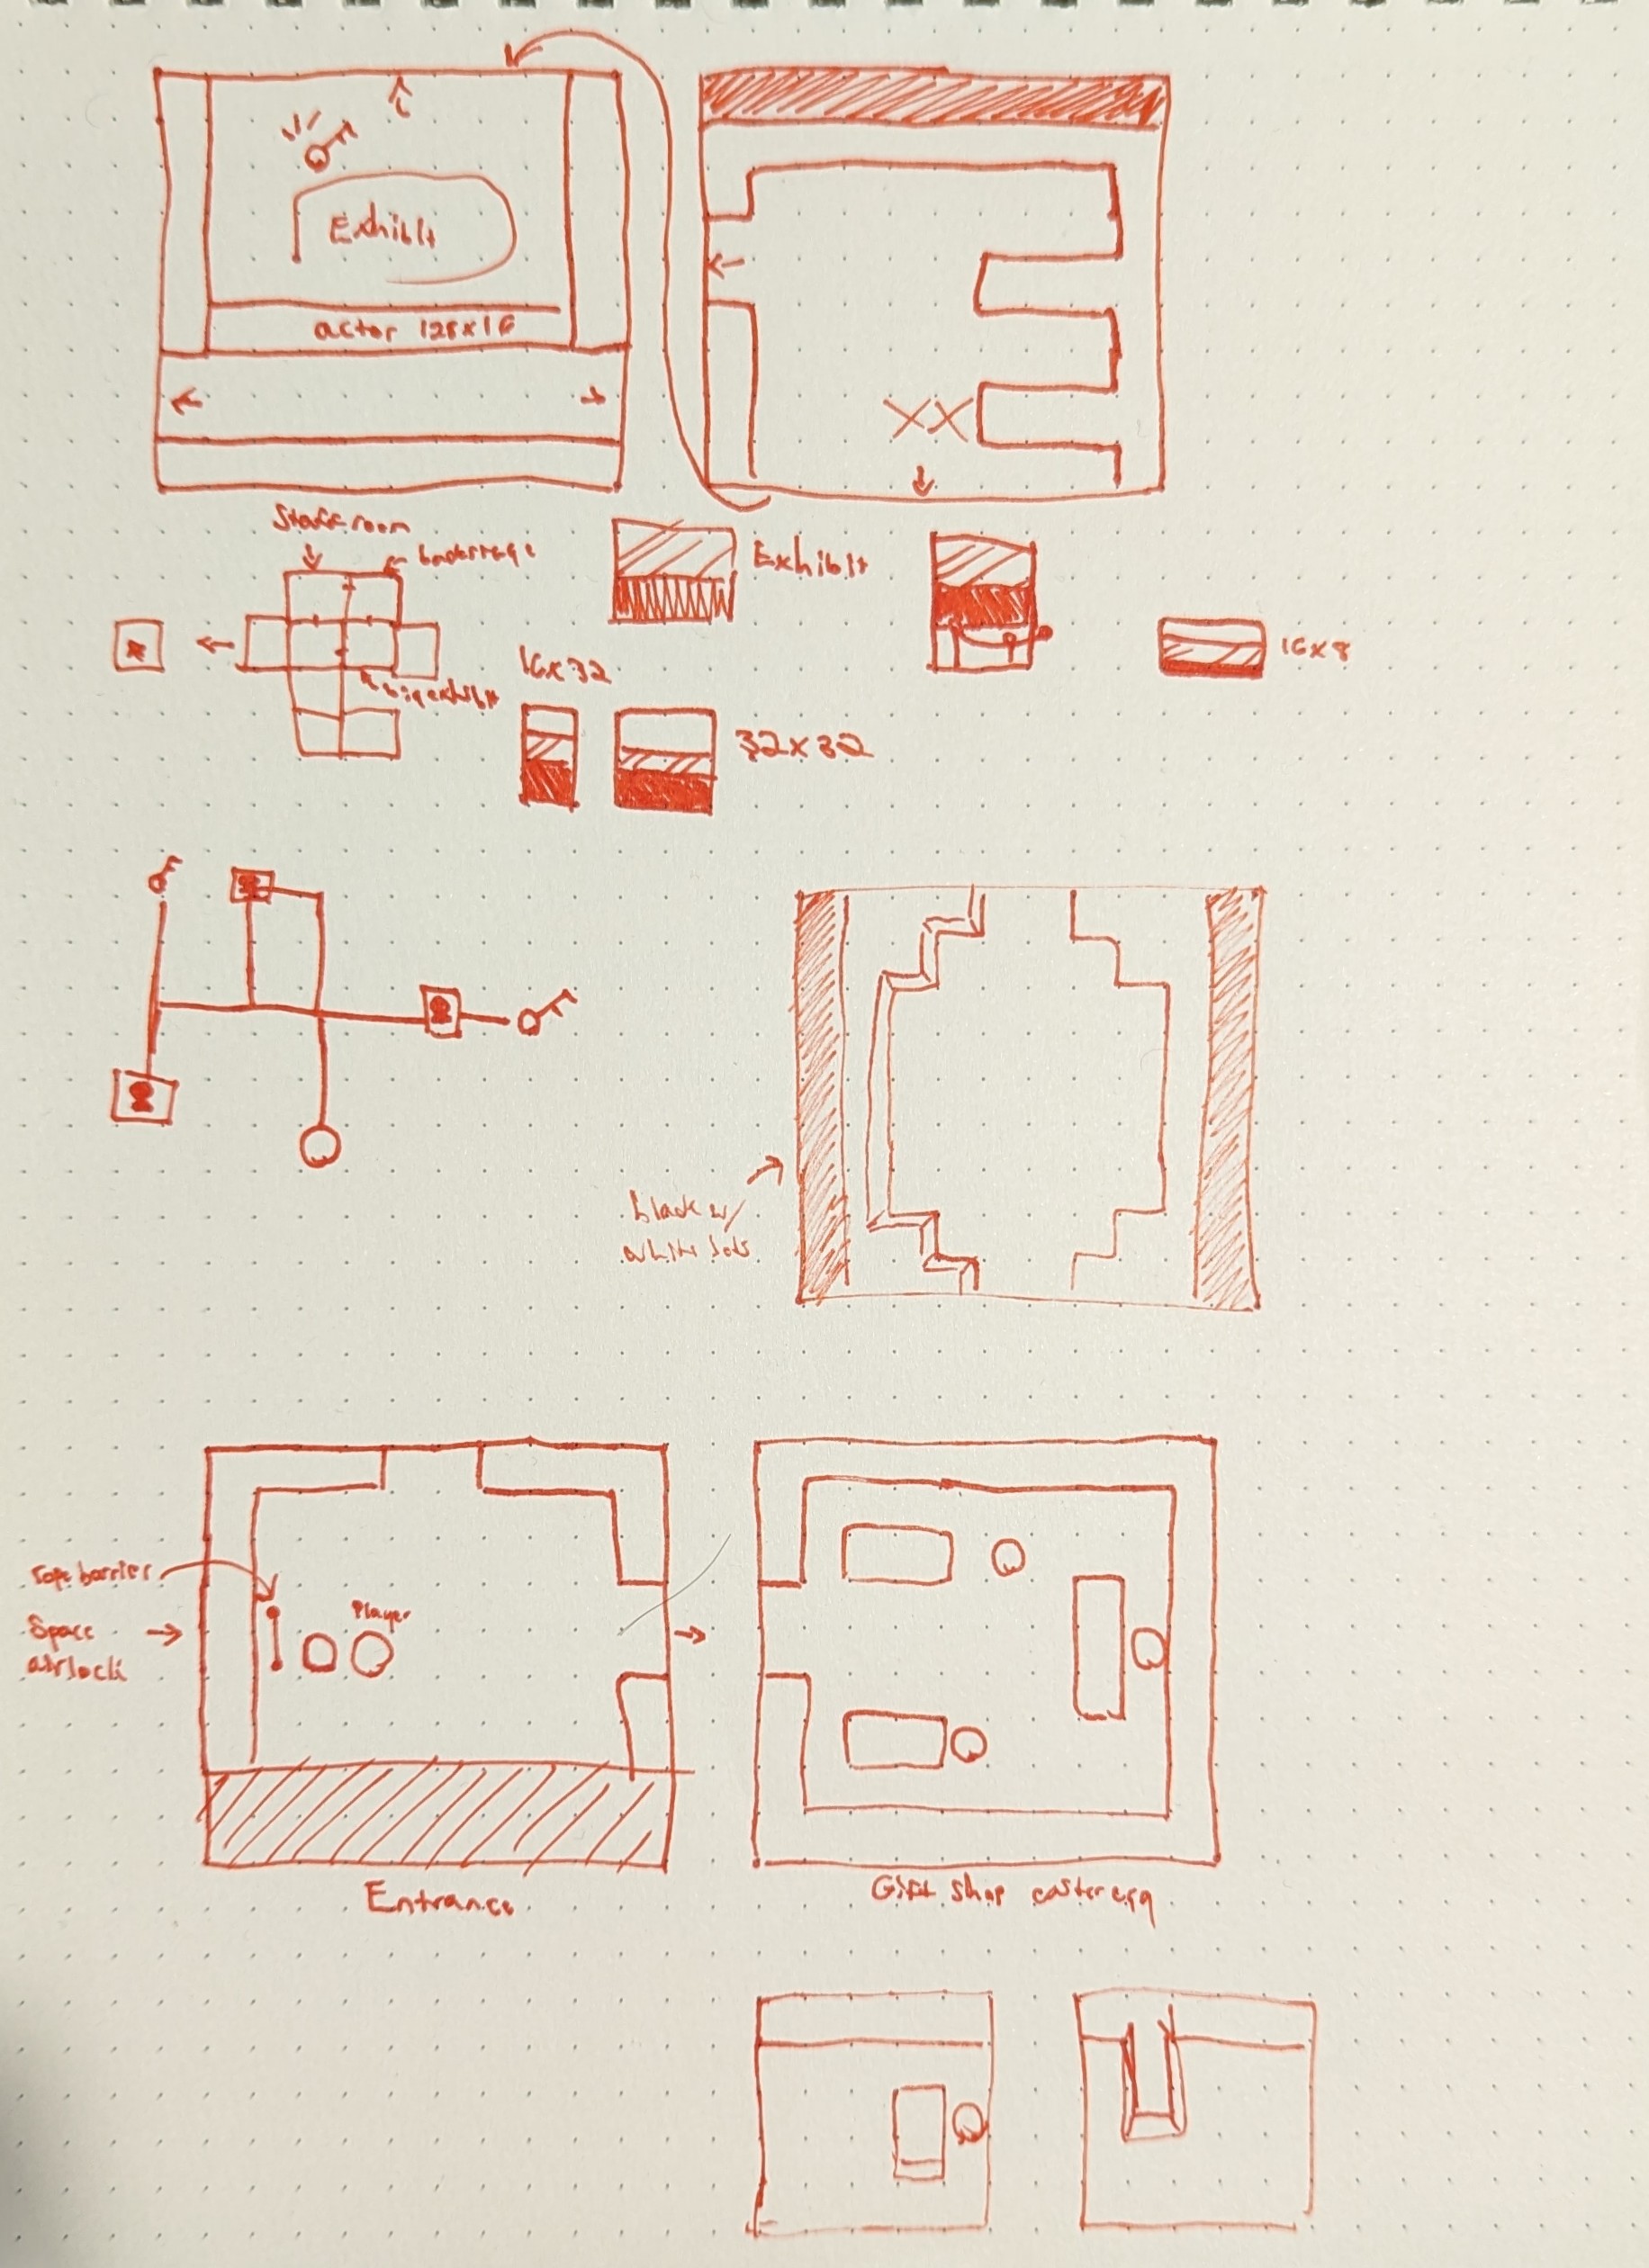 Exhibit
actor 128x16
Staff room
backstage
Exhibit
16x8
16x32
big exhibit
32x32
black w/
white dots
rope barrier
Space
airlock
Player
Entrance
Gift shop easter egg